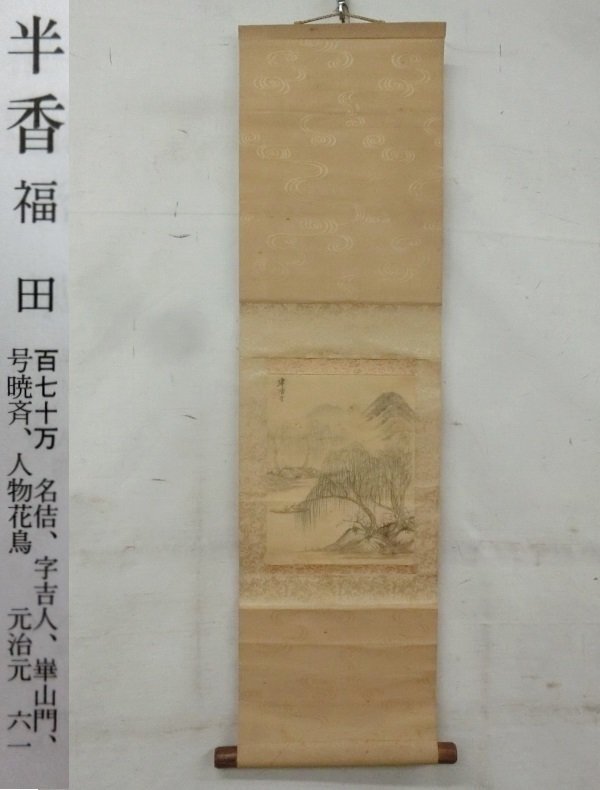 半香福田
百七十万 名佶、字吉人、崋山門、
号暁斉、人物花鳥 元治元 六一